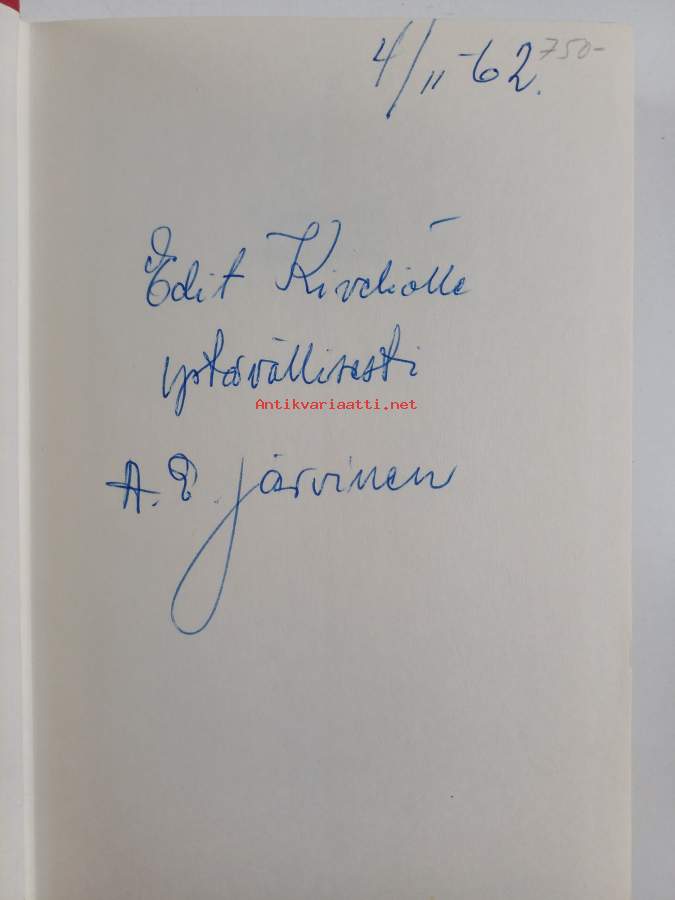 4/II -62.
750-
Edit Kiveliölle
ystävällisesti
Antikvariaatti.net
A. E. Järvinen